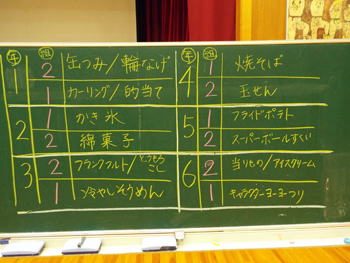 年 班
1 2 缶つみ/輪なげ
1 カーリング/的当て
2 1 かき氷
2 綿菓子
3 2 フランクフルト/とうもろこし
1 冷やしそうめん
年 班
4 1 焼そば
2 玉せん
5 1 フライドポテト
2 スーパーボールすくい
6 2 当りもの/アイスクリーム
1 キャラクターヨーヨーつり